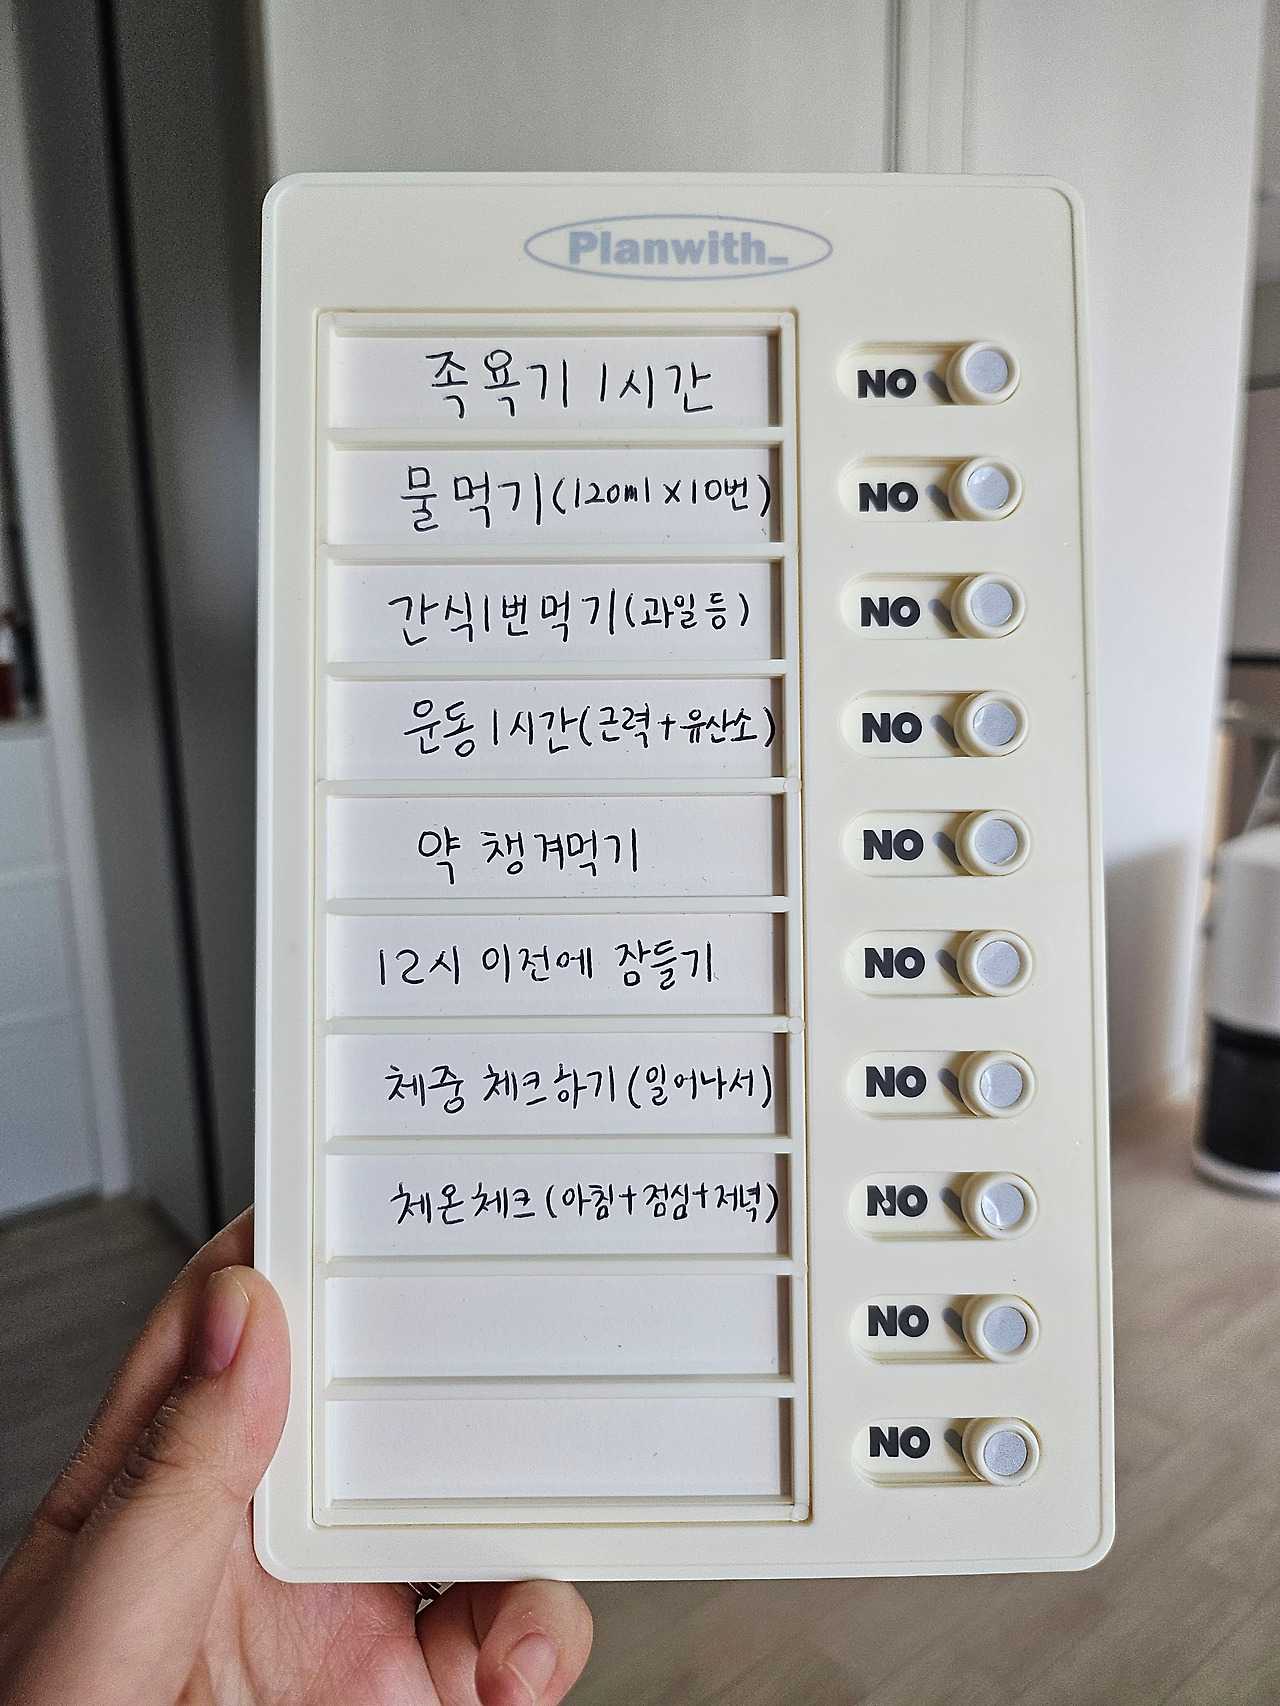 Planwith_
족욕기 1시간 NO
물 먹기(120ml X10번) NO
간식1번먹기(과일 등) NO
운동 1시간(근력+유산소) NO
약 챙겨먹기 NO
12시 이전에 잠들기 NO
체중 체크하기(일어나서) NO
체온체크(아침+점심+저녁) NO
NO
NO